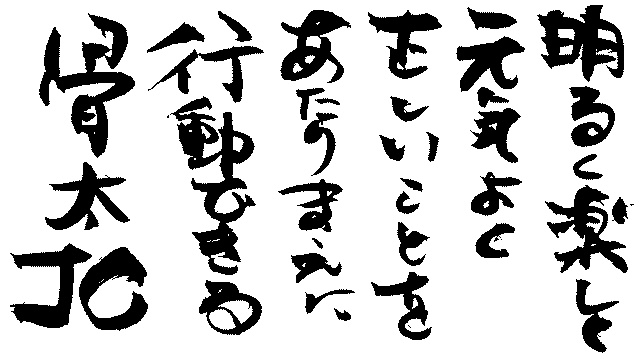 明るく楽しく
元気よく
正しいことを
あたりまえに
行動できる
骨太JC